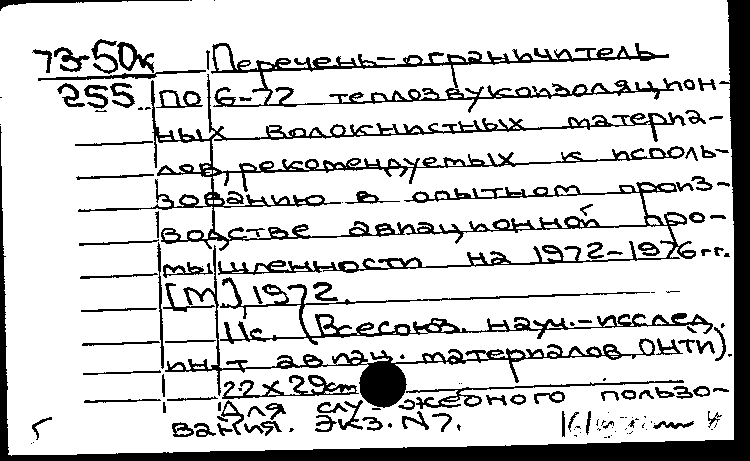 73-50к Перечень-ограничитель
255 ПО 6-72 теплозвукоизоляцион-
ных волокнистных материа-
лов, рекомендуемых к исполь-
зованию в опытном произ-
водстве авиационной про-
мышленности на 1972-1976гг.
[М.] 1972.
11с. (Всесоюз. науч.-исслед.
ин-т авиац. материалов, ОНТИ).
22 х 29cm
Для служебного пользо-
вания. Экз. N7.